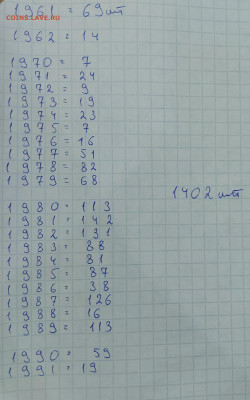 COINSS.LAVE.RU
1961 = 69 шт
1962 = 14
1970 = 7
1971 = 24
1972 = 9
1973 = 19
1974 = 23
1975 = 7
1976 = 16
1977 = 51
1978 = 82
1979 = 68
1402 шт
1980 = 113
1981 = 142
1982 = 131
1983 = 88
1984 = 81
1985 = 87
1986 = 38
1987 = 126
1988 = 16
1989 = 113
1990 = 59
1991 = 19